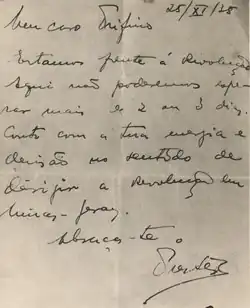 25/XI/35
Meu caro Trifino
Estamos frente á revolução.
Aqui não poderemos espe-
rar mais de 2 ou 3 dias.
Conto com a tua energia e
decisão no sentido de
dirigir a revolução em
Minas-Geraes.
Abraça-te o
Prestes